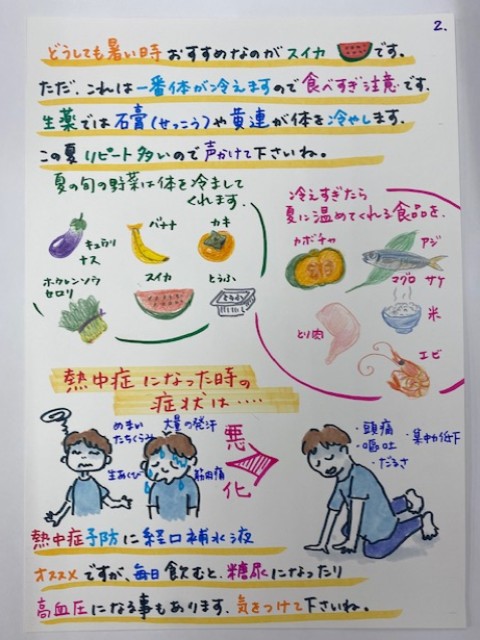 2.
どうしても暑い時おすすめなのがスイカです。
ただ、これは一番体が冷えますので食べすぎ注意です。
生薬では石膏(せっこう)や黄連が体を冷やします。
この夏リピート多いので声かけて下さいね。
夏の旬の野菜は体を冷まして
くれます。
キュウリ
ナス
バナナ
カキ
ホウレンソウ
セロリ
スイカ
とうふ
冷えすぎたら
夏に温めてくれる食品を。
カボチャ
アジ
マグロ サケ
とり肉
米
エビ
熱中症になった時の
症状は‥‥
めまい
たちくらみ
大量の発汗
生あくび
筋肉痛
悪
化
・頭痛
・嘔吐
・集中低下
・だるさ
熱中症予防に経口補水液
オススメですが、毎日飲むと、糖尿になったり
高血圧になる事もあります。気をつけて下さいね。